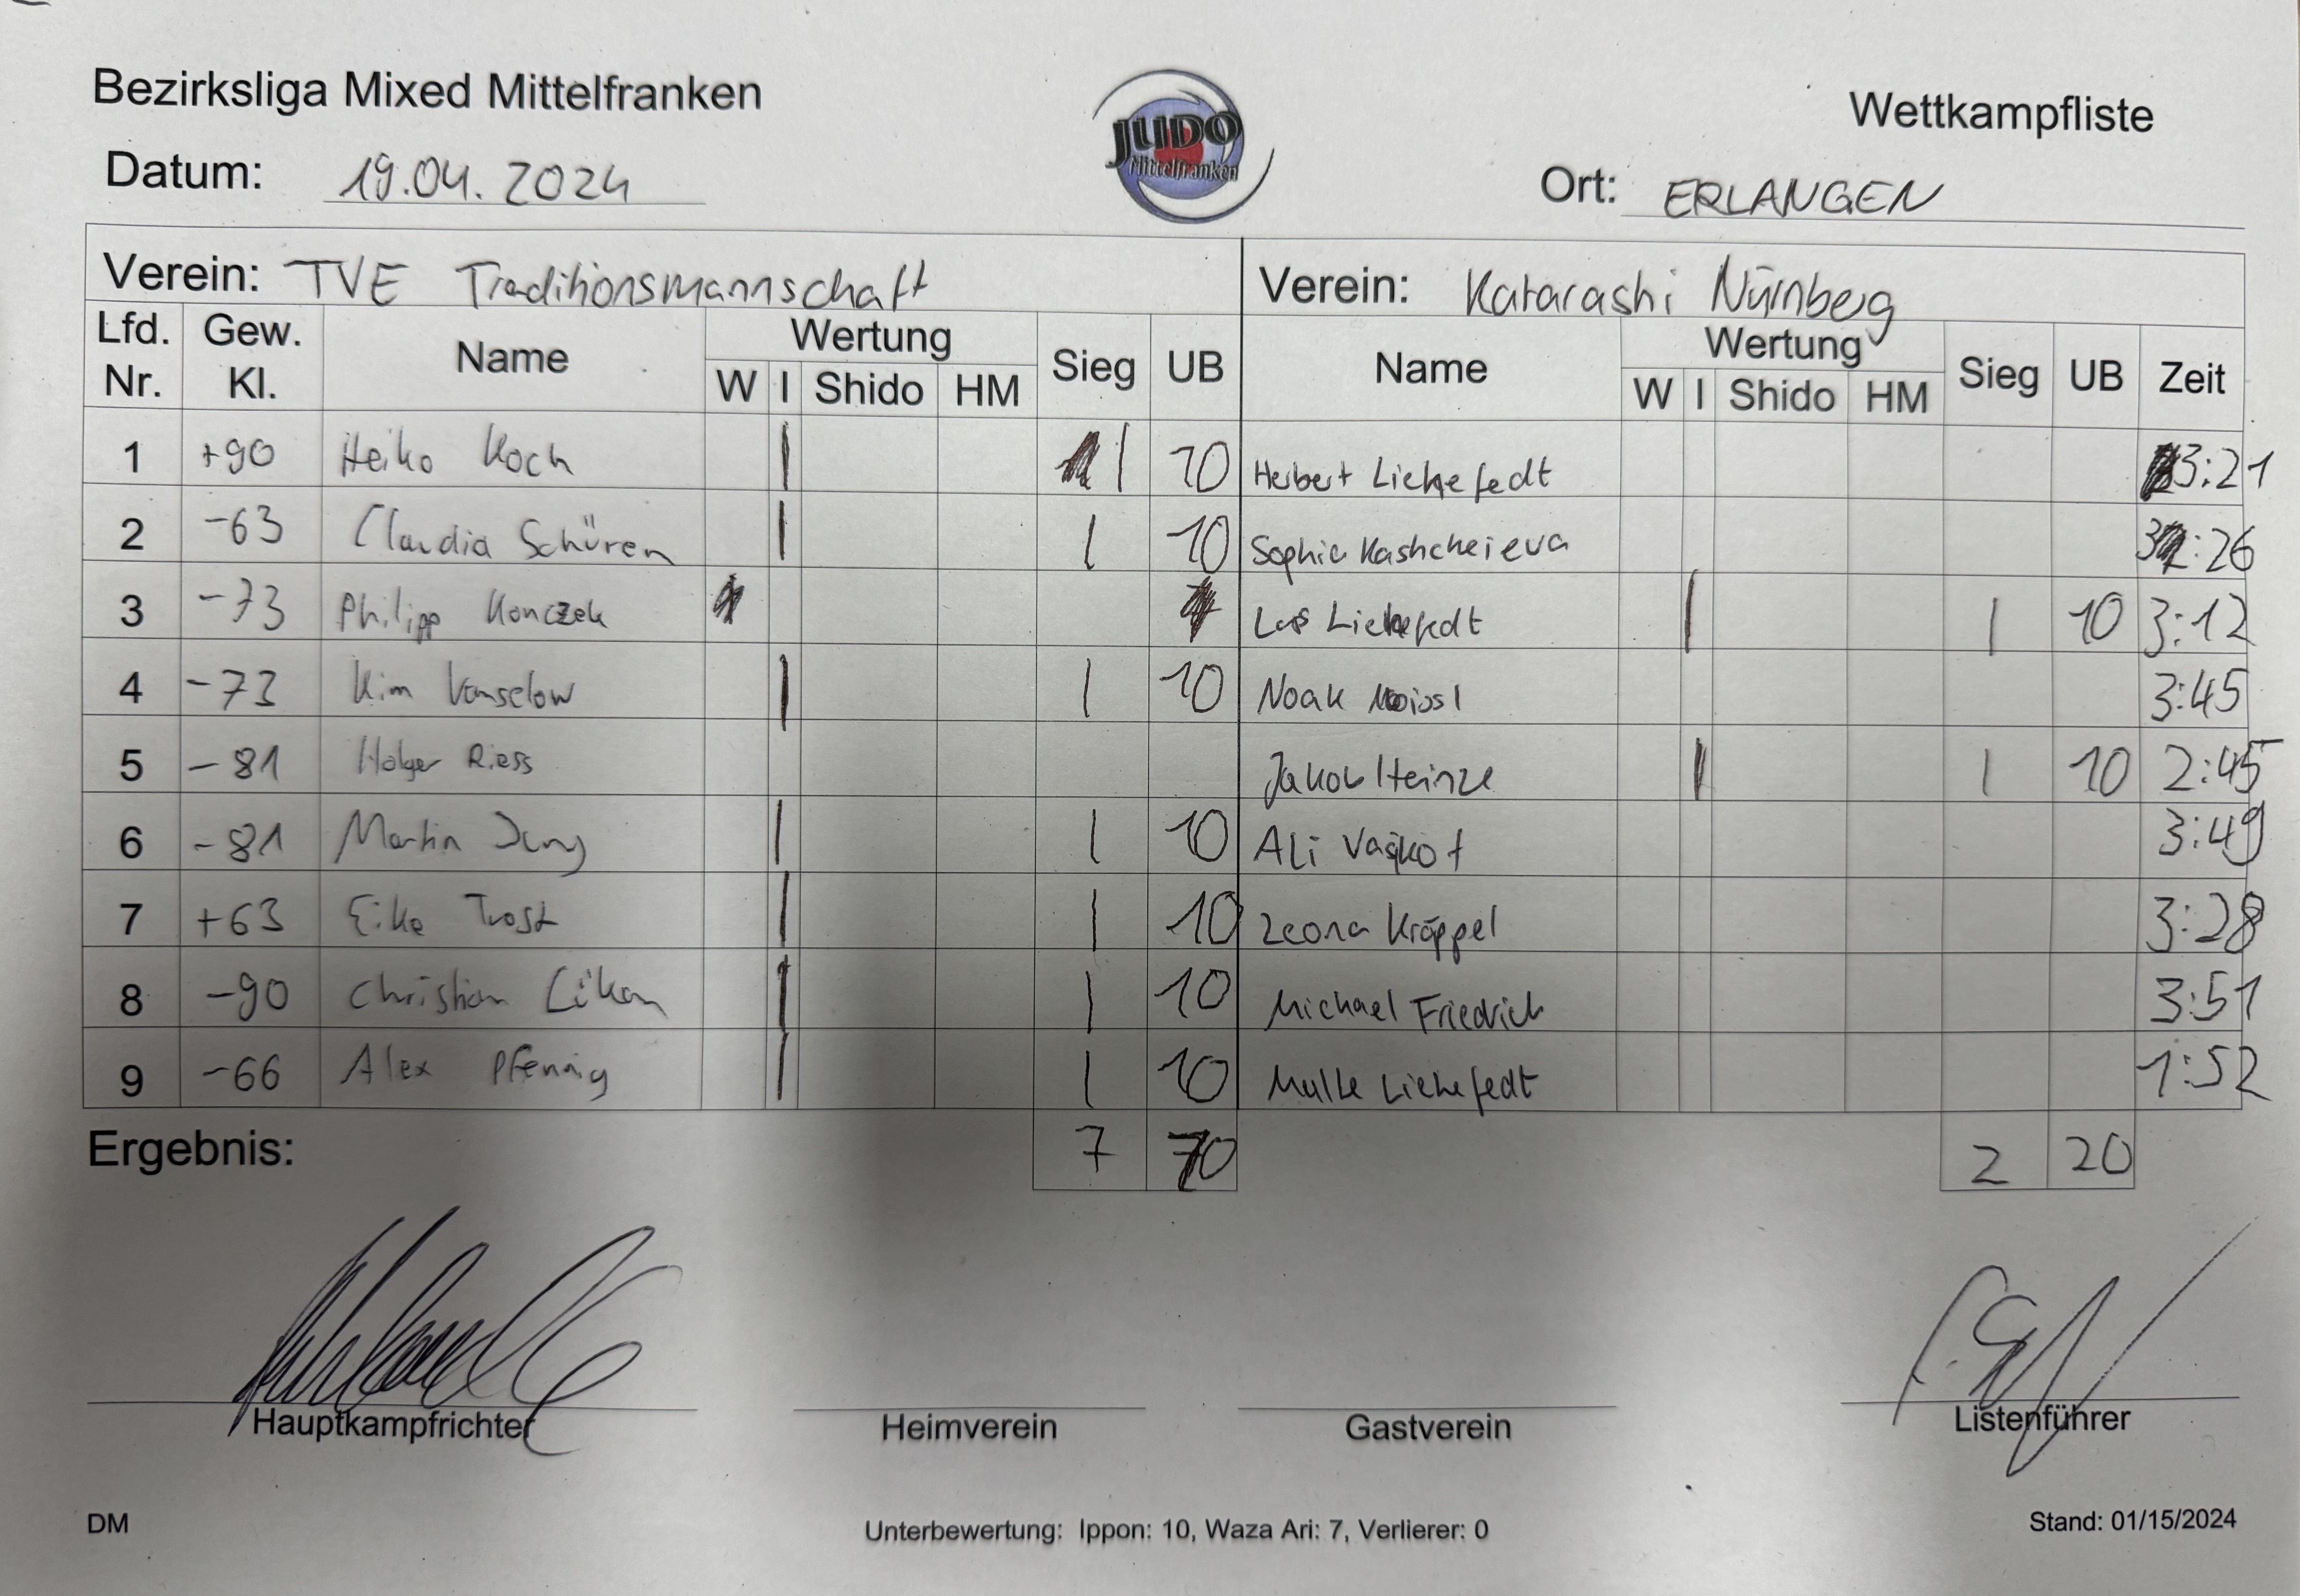 Bezirksliga Mixed Mittelfranken
JUDO
Mittelfranken
Wettkampfliste
Datum: 19.04.2024
Ort: ERLANGEN
Verein: TVE Traditionsmannschaft Verein: Katarashi Nürnberg
Lfd. Nr. Gew. Kl. Name Wertung Sieg UB Name Wertung Sieg UB Zeit
W I Shido HM W I Shido HM
1 +90 Heiko Koch | | 10 Herbert Liekefedt 3:21
2 -63 Claudia Schüren | | 10 Sophia Kashcheieva 3:26
3 -73 Philipp Konczek Liekefedt | | 10 3:12
4 -73 Kim Vanselow | | 10 Noah 3:45
5 -81 Holger Riess Jakob Heinze | | 10 2:45
6 -81 Martin Jung | | 10 Ali 3:49
7 +63 Eike Trost | | 10 Leona Kröppel 3:28
8 -90 Christian | | 10 Michael Friedrich 3:51
9 -66 Alex Pfennig | | 10 Liekefedt 1:52
Ergebnis: 7 70 2 20
Hauptkampfrichter Heimverein Gastverein Listenführer
DM Unterbewertung: Ippon: 10, Waza Ari: 7, Verlierer: 0 Stand: 01/15/2024